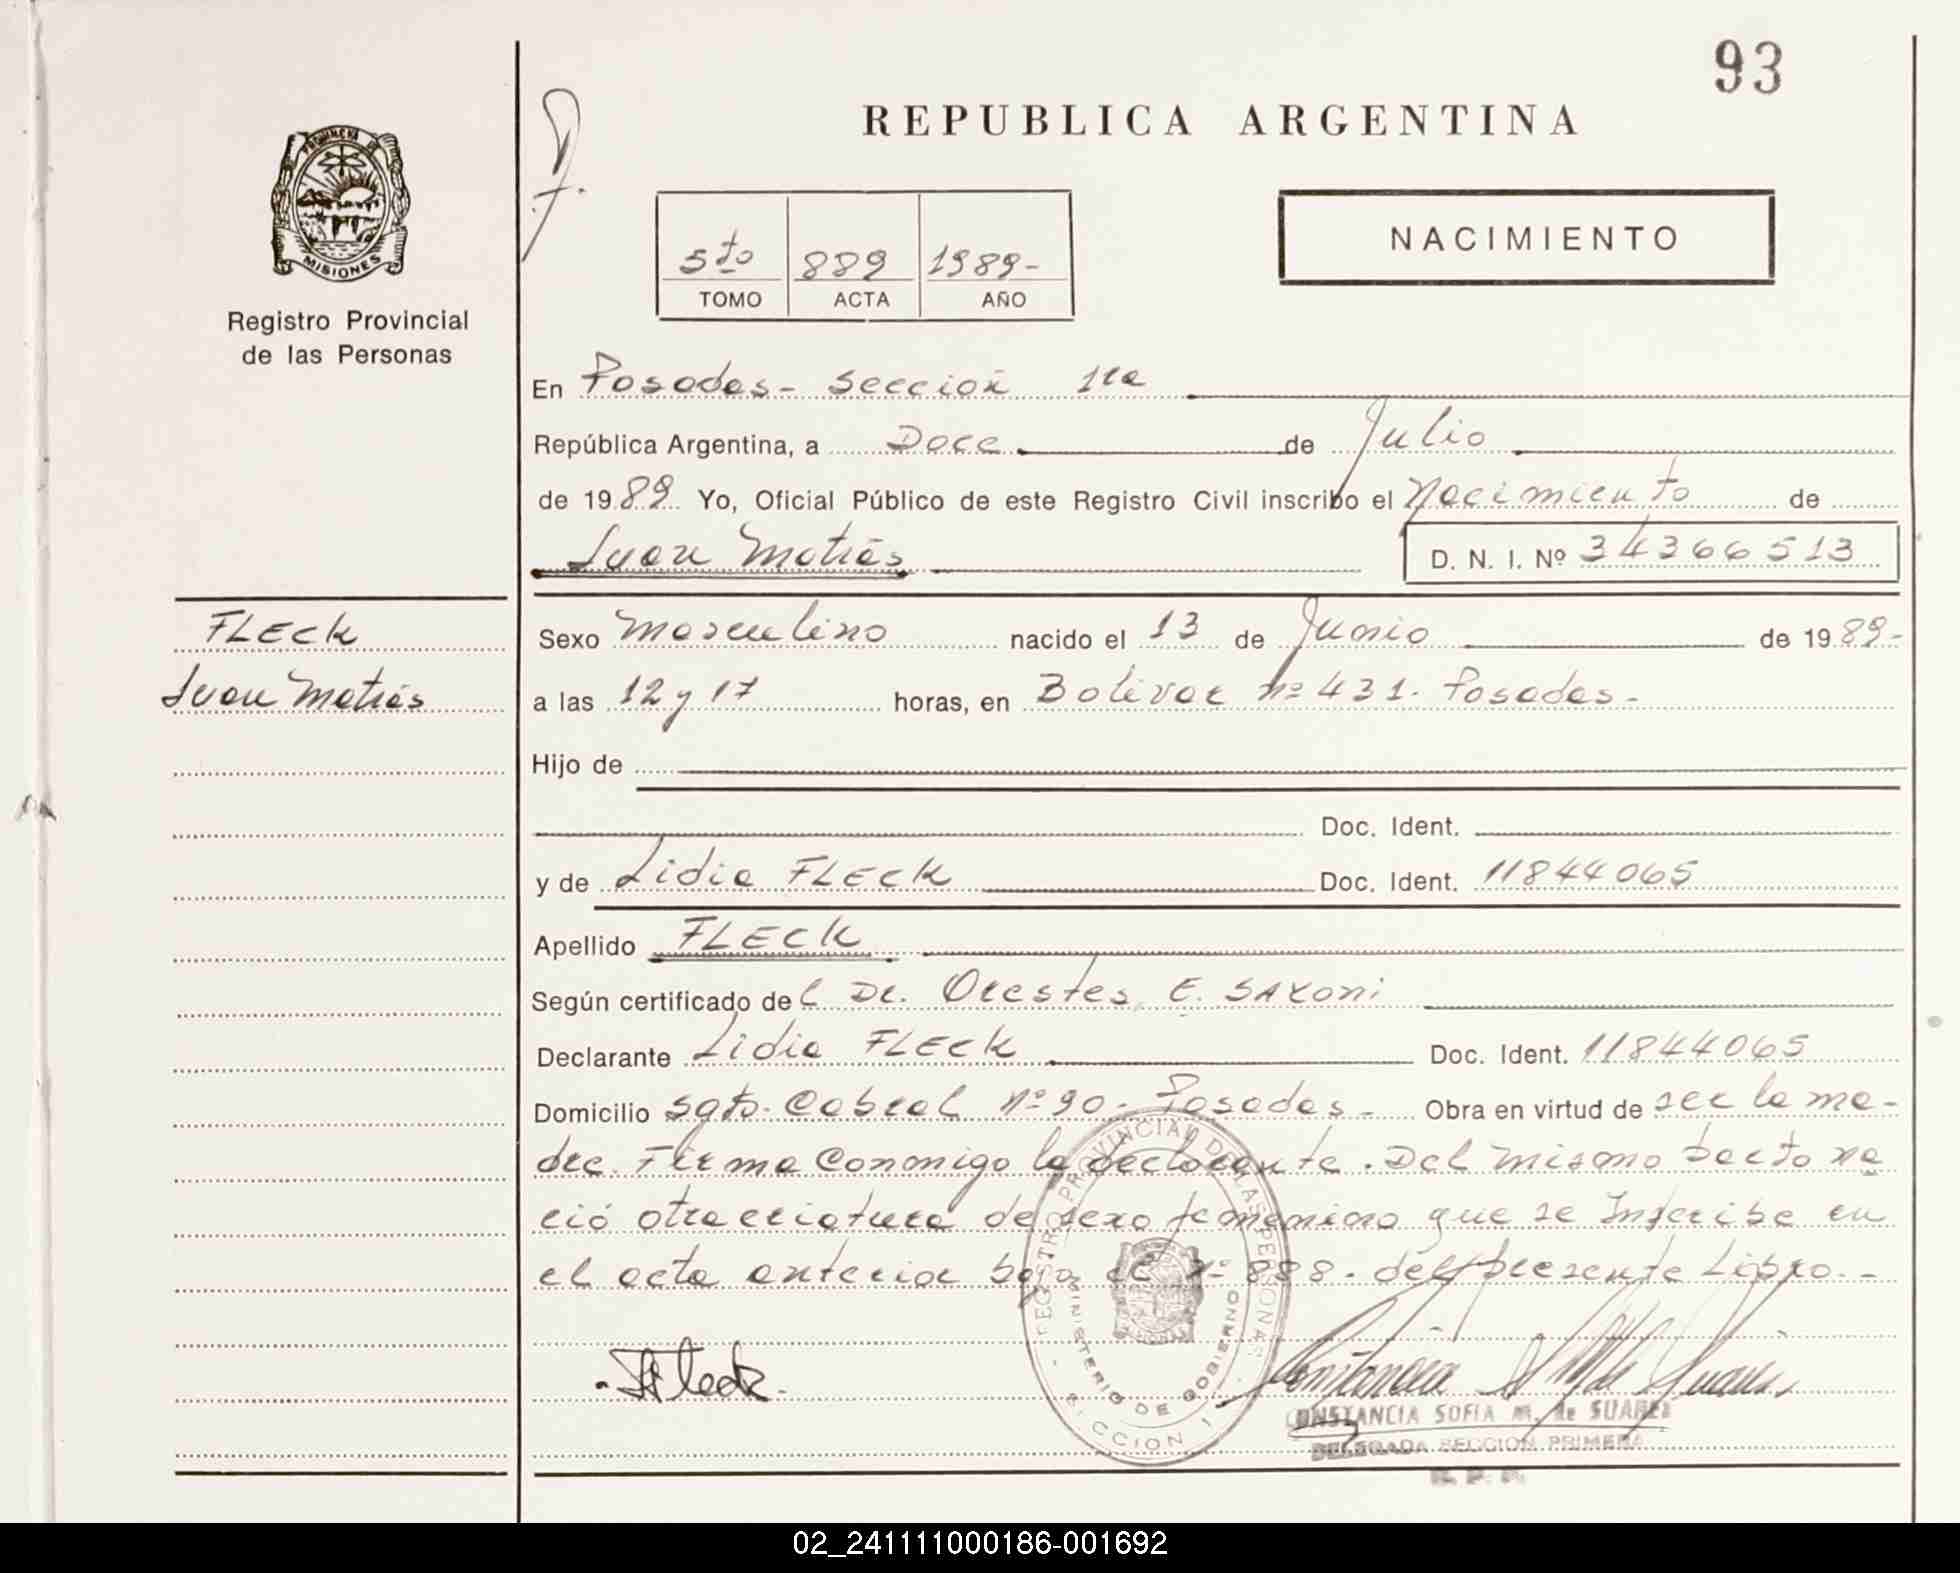 93
REPUBLICA ARGENTINA
PROVINCIA DE
MISIONES
Registro Provincial
de las Personas
5to 889 1989-
TOMO ACTA AÑO
NACIMIENTO
En Posadas - Sección 1ra
República Argentina, a Doce de Julio
de 1989 Yo, Oficial Público de este Registro Civil inscribo el Nacimiento de
Juan Matías
D. N. I. Nº 34366513
FLECK
Juan Matías
Sexo Masculino nacido el 13 de Junio de 1989-
a las 12 y 17 horas, en Bolivar nº 431. Posadas -
Hijo de
Doc. Ident.
y de Lidia FLECK Doc. Ident. 11844065
Apellido FLECK
Según certificado del Dr. Orestes E. SAXONI
Declarante Lidia FLECK Doc. Ident. 11844065
Domicilio Sgto. Cabral nº 90 - Posadas - Obra en virtud de ser la ma-
dre. Firma conmigo la declarante. Del mismo parto na
ció otra criatura de sexo femenino que se Inscribe en
el acta anterior bajo el nº 888. del presente Libro. -
Fleck
REGISTRO PROVINCIAL DE LAS PERSONAS
MINISTERIO DE GOBIERNO
SECCION 1
Constancia Suarez
CONSTANCIA SOFIA M. de SUAREZ
DELEGADA SECCION PRIMERA
R. P. P.
02_241111000186-001692